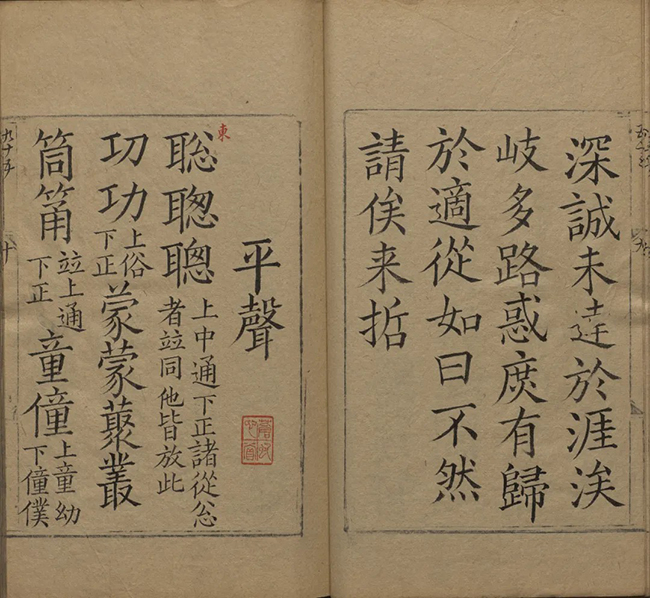 深誠未逹於涯涘
岐多路惑庻有歸
於適從如曰不然
請俟来哲
平聲
東
聡聦聰上中通下正諸從忩
者竝同他皆放此
㓛功上俗
下正
蒙䝉藂叢
筒筩竝上通
下正
童僮上童幼
下僮僕
十